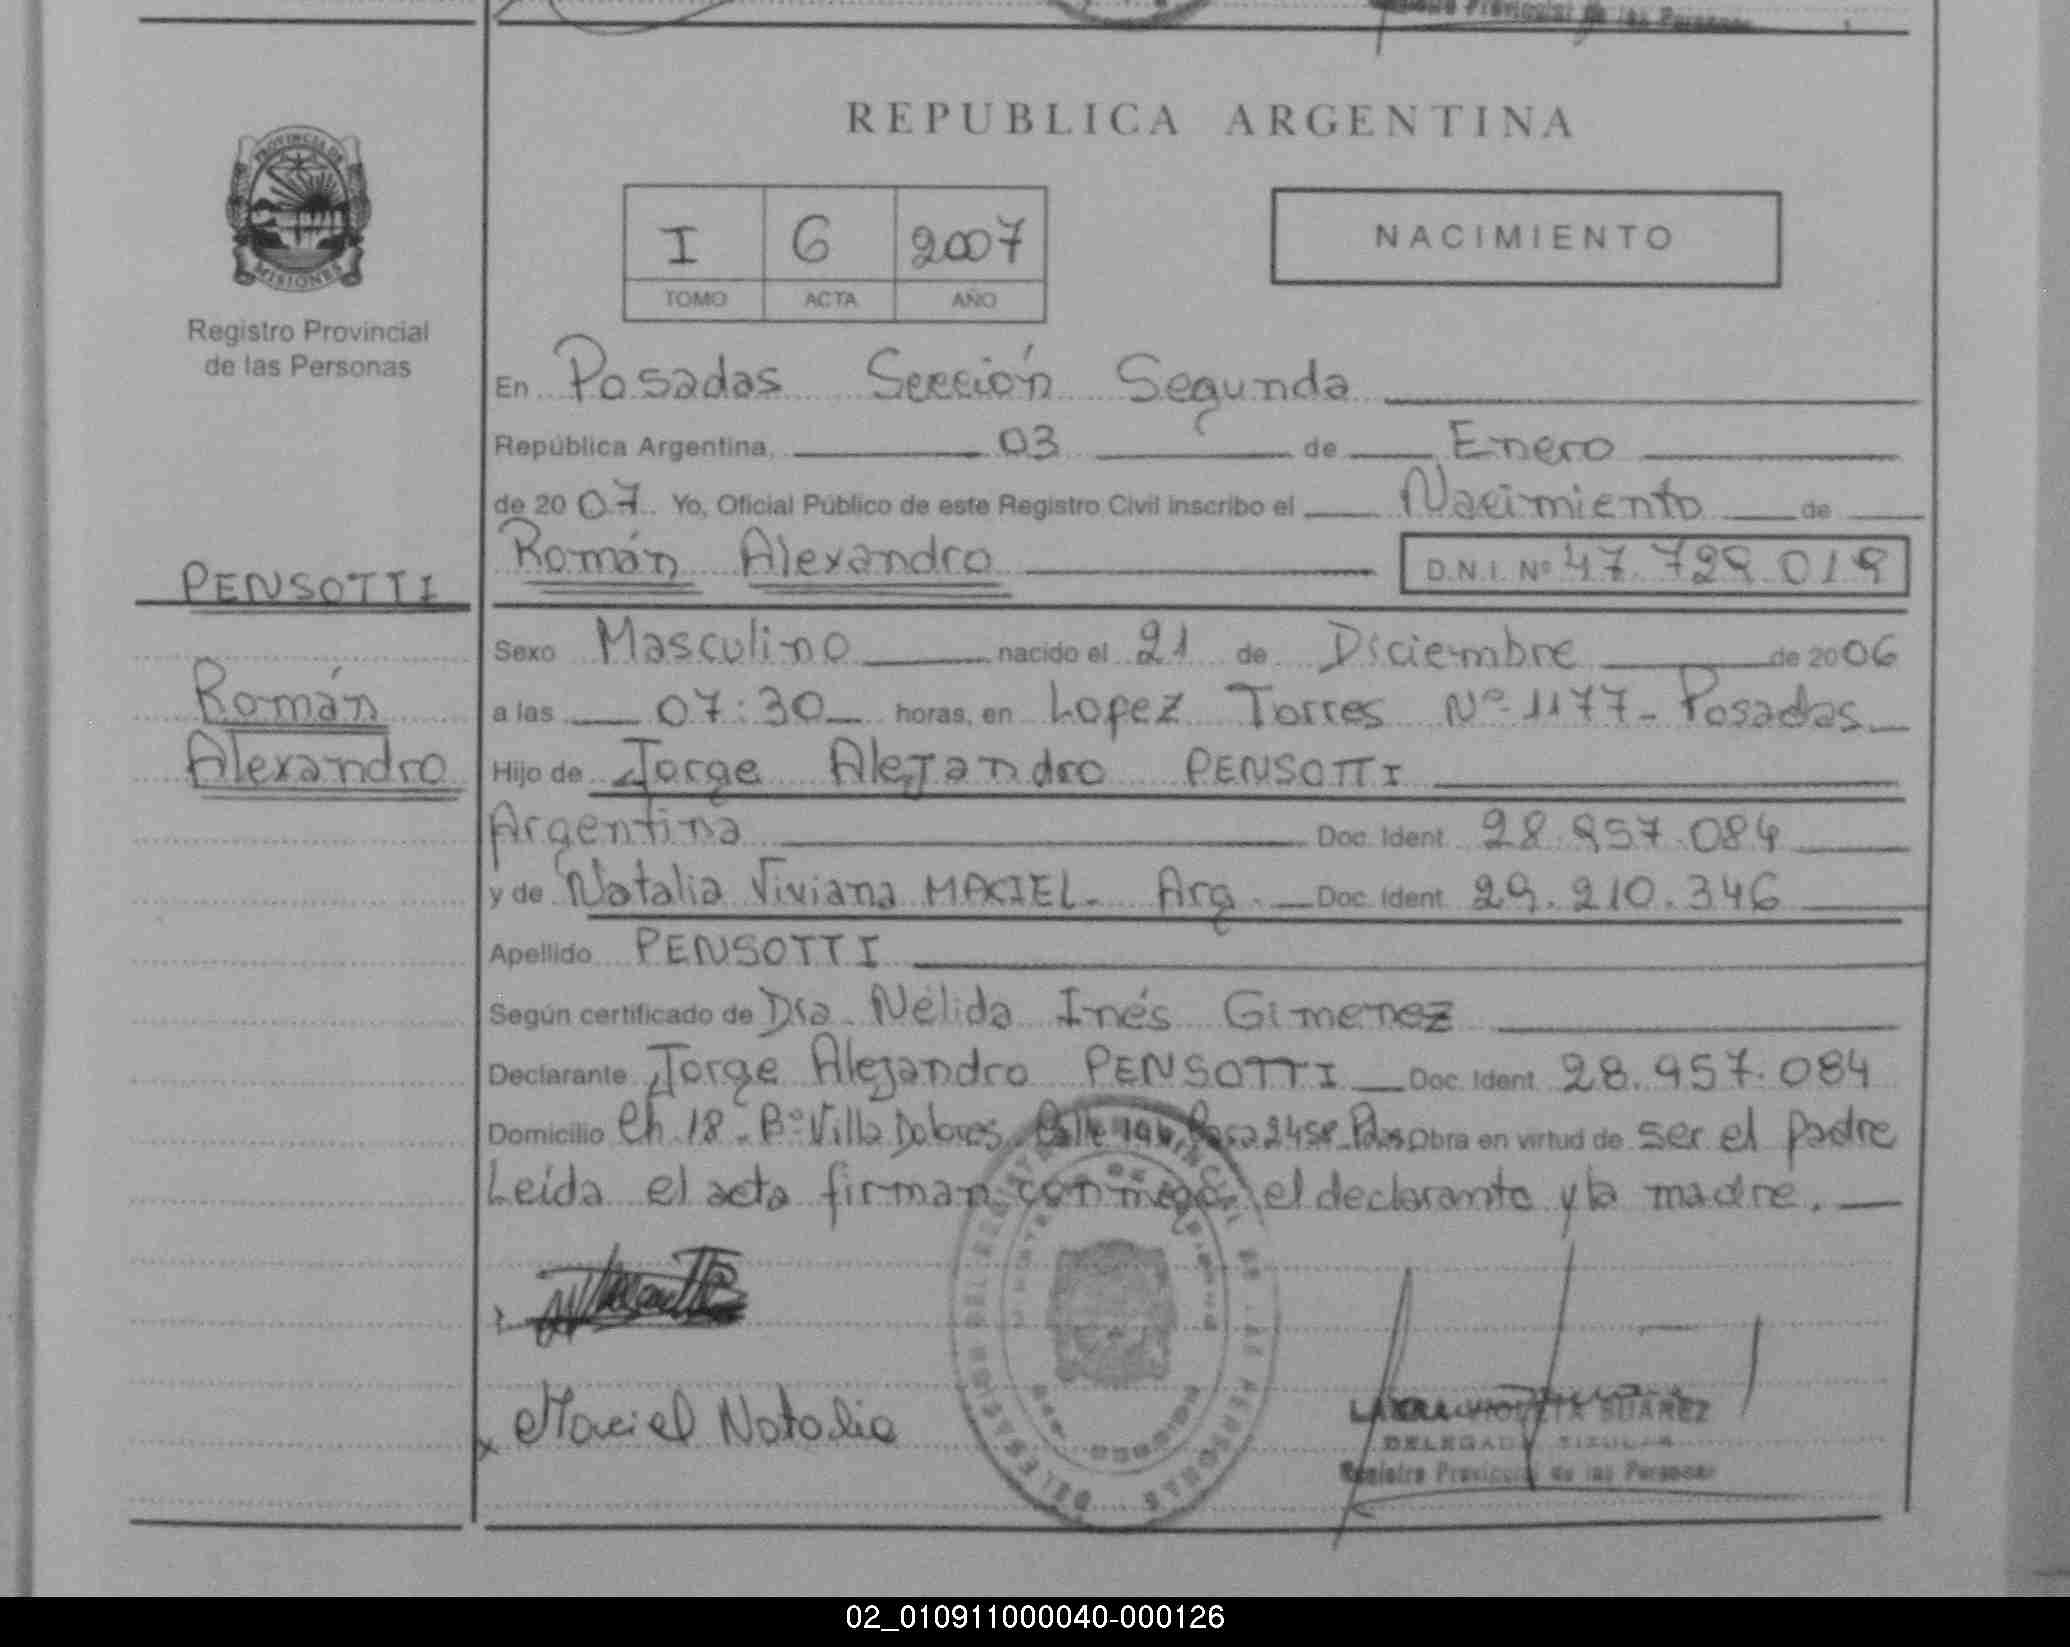 Registro Provincial de las Personas
PROVINCIA DE
MISIONES
Registro Provincial
de las Personas
PENSOTTI
Román
Alexandro
REPUBLICA ARGENTINA
I 6 2007
TOMO ACTA AÑO
NACIMIENTO
En Posadas Sección Segunda
República Argentina, 03 de Enero
de 2007. Yo, Oficial Público de este Registro Civil inscribo el Nacimiento de
Román Alexandro D.N.I. Nº 47.729.019
Sexo Masculino nacido el 21 de Diciembre de 2006
a las 07:30 horas, en Lopez Torres Nº 1177 - Posadas
Hijo de Jorge Alejandro PENSOTTI
Argentina Doc. Ident. 28.957.084
y de Natalia Viviana MACIEL. Arg. Doc. Ident. 29.210.346
Apellido PENSOTTI
Según certificado de Dra. Nélida Inés Gimenez
Declarante Jorge Alejandro PENSOTTI Doc. Ident. 28.957.084
Domicilio Ch. 18 - Bº Villa Dolores, Calle Casa 2458 Obra en virtud de ser el padre
Leída el acta firman conmigo el declarante y la madre.
Maciel Natalia
VIOLETA SUAREZ
DELEGADA TITULAR
Registro Provincial de las Personas
02_010911000040-000126